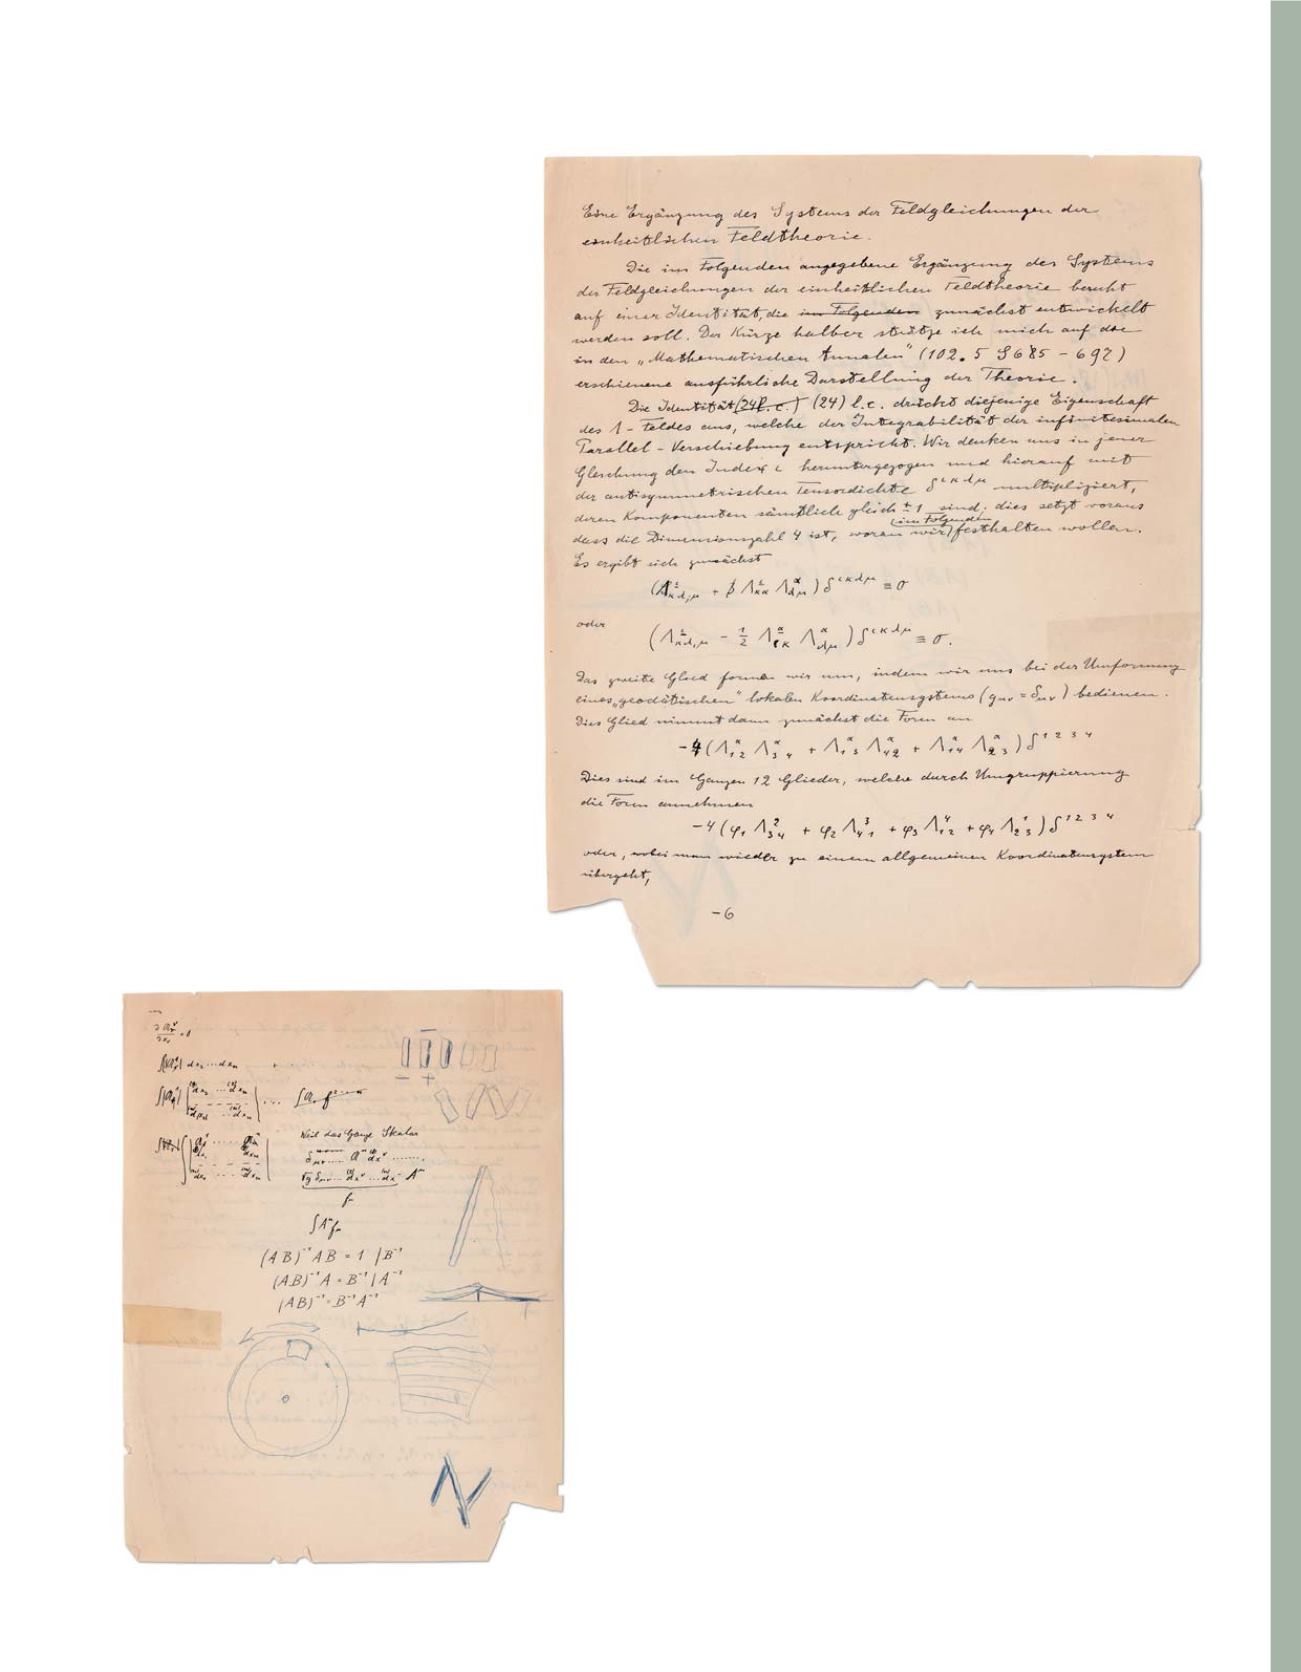 Eine Ergänzung des Systems der Feldgleichungen der
einheitlichen Feldtheorie.
Die im Folgenden angegebene Ergänzung des Systems
der Feldgleichungen der einheitlichen Feldtheorie beruht
auf einer Identität, die im Folgenden zunächst entwickelt
werden soll. Der Kürze halber stütze ich mich auf die
in den „Mathematischen Annalen" (102. 5 S 685 - 697)
erschienene ausführliche Darstellung der Theorie.
Die Identität (24 l.c.) (24) l.c. drückt diejenige Eigenschaft
des Λ-Feldes aus, welche der Integrabilität der infinitesimalen
Parallel-Verschiebung entspricht. Wir denken uns in jener
Gleichung den Index ι heruntergezogen und hierauf mit
der antisymmetrischen Tensordichte δ^{ικλμ} multipliziert,
deren Komponenten sämtlich gleich ±1 sind; dies setzt voraus
dass die Dimensionszahl 4 ist, woran wir (im Folgenden) festhalten wollen.
Es ergibt sich zunächst
oder
(Λ^ι_{κλ,μ} - 1/2 Λ^α_{ικ} Λ^α_{λμ}) δ^{ικλμ} ≡ 0.
Das zweite Glied formen wir um, indem wir uns bei der Umformung
eines „geodätischen" lokalen Koordinatensystems (g_{μν} = δ_{μν}) bedienen.
Dies Glied nimmt dann zunächst die Form an
-4(Λ^α_{12} Λ^α_{34} + Λ^α_{13} Λ^α_{42} + Λ^α_{14} Λ^α_{23}) δ^{1234}
Dies sind im Ganzen 12 Glieder, welche durch Umgruppierung
die Form annehmen
-4(φ_1 Λ^2_{34} + φ_2 Λ^3_{41} + φ_3 Λ^4_{12} + φ_4 Λ^1_{23}) δ^{1234}
oder, wobei man wieder zu einem allgemeinen Koordinatensystem
übergeht,
-6
Weil das Ganze Skalar
(AB)^{-1} AB = 1 | B^{-1}
(AB)^{-1} A = B^{-1} | A^{-1}
(AB)^{-1} = B^{-1} A^{-1}